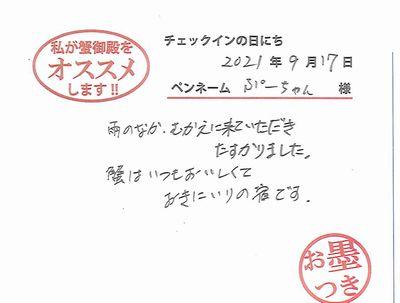 私が蟹御殿を
オススメ
します!!
チェックインの日にち
2021年9月17日
ペンネーム ぷーちゃん 様
雨のなか、むかえに来ていただき
たすかりました。
蟹はいつもおいしくて
おきにいりの宿です。
お墨
つき